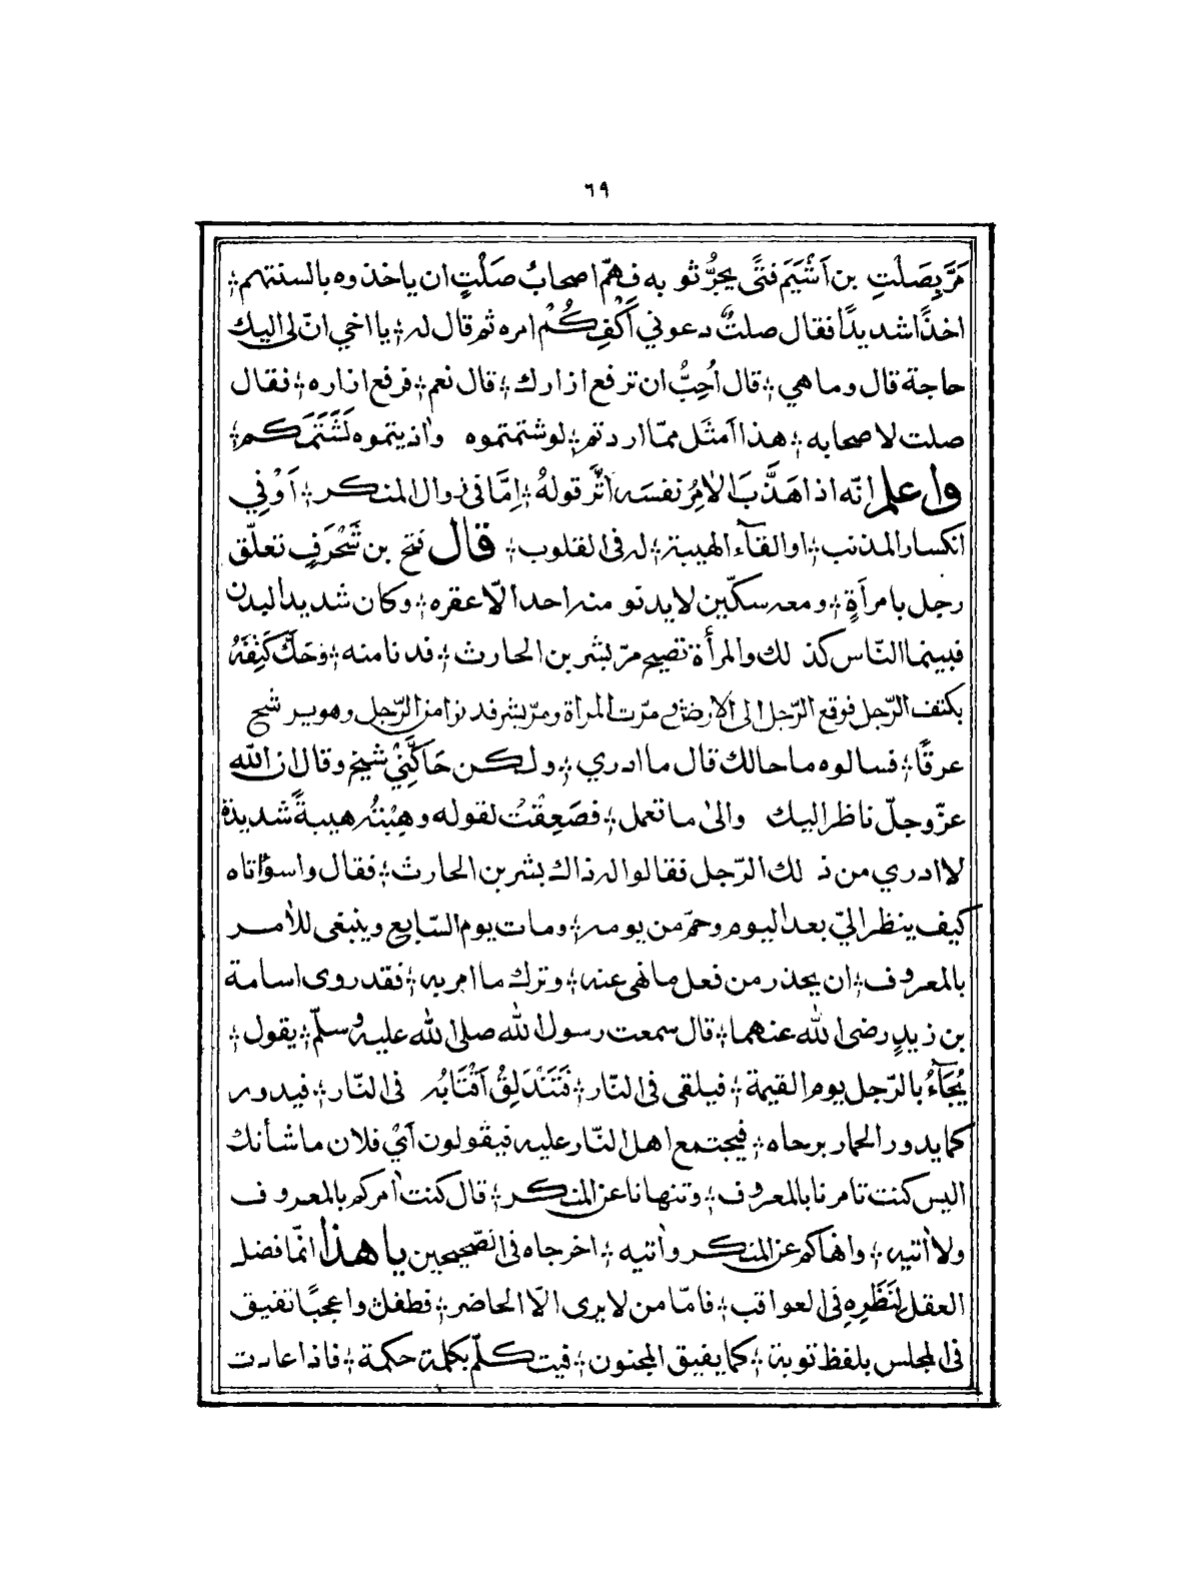 ٦٩
مَرَّ بِصَلْتِ بن اَشْيَمَ فتًى يجرُّ ثوبه فهمّ اصحابُ صَلْتٍ ان ياخذوه بالسنتهم؛
اخذًا شديدًا فقال صلتٌ دعوني اَكْفِكُمْ امره ثم قال له؛ يا اخي انّ لي اليك
حاجة قال وما هي؛ قال اُحِبُّ ان ترفع ازارك؛ قال نعم؛ فرفع ازاره؛ فقال
صلت لاصحابه؛ هذا اَمثَل ممّا اردتم؛ لو شتمتموه واٰذيتموه لَشَتَمَكم؛
واعلم انّه اذا هَذَّبَ الاٰمِرُ نفسَه اثَّر قولهُ؛ اِمَّا فى زوال المنكر؛ اَوْفِي
انكسار المذنب؛ او القآء الهيبة؛ له فى القلوب؛ قال فتح بن شَحْرَفٍ تعلّق
رجل بامراَةٍ؛ ومعه سكّين لا يدنو منه احد الّا عقره؛ وكان شديد البدن
فبينما النّاس كذلك والمرأة تصيح مرّ بشر بن الحارث؛ فدنا منه؛ وَحَكَّ كَتِفَهُ
بكتف الرّجل فوقع الرّجل الى الارض ومرّت المراة ومرّ بشر فدنوا من الرّجل وهو يرشح
عرقًا؛ فسالوه ما حالك قال ما ادري؛ ولكن حَاكَّنِيْ شيخ وقال ان الله
عزّ وجلّ ناظر اليك والىٰ ما تعمل؛ فَضَعِفْتُ لقوله وهِبْتُه هيبةً شديدة
لا ادري من ذلك الرّجل فقالوا له ذاك بشر بن الحارث؛ فقال واسوأتاه
كيف ينظر اليّ بعد اليوم وحمّ من يومه؛ ومات يوم السّابع وينبغى للاٰمر
بالمعروف؛ ان يحذر من فعل ما نهى عنه؛ وترك ما امر به؛ فقد روى اسامة
بن زيدٍ رضى الله عنهما؛ قال سمعت رسول الله صلى الله عليه وسلّم؛ يقول؛
يُجَآءُ بالرّجل يوم القيمة؛ فيلقى فى النّار؛ فَتَنْدَلِقُ اَقْتَابُه فى النّار؛ فيدور
كما يدور الحمار برحاه؛ فيجتمع اهل النّار عليه فيقولون اَيْ فلان ما شأنك
اليس كنت تامرنا بالمعروف؛ وتنهانا عن المنكر؛ قال كنت اٰمركم بالمعروف
ولا اٰتيه؛ وانهاكم عن المنكر واٰتيه؛ اخرجاه فى الصّحيحين يا هذا انّما فضل
العقل لِنَظَرِهِ فى العواقب؛ فامّا من لا يرى الّا الحاضر؛ فطفل واعجبًا تفيق
فى المجلس بلفظ توبة؛ كما يفيق المجنون؛ فيتكلّم بكلمة حكمة؛ فاذا عادت